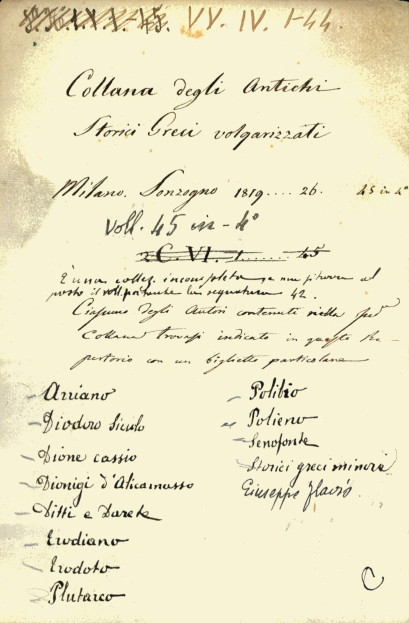 VV. IV. 1-44.
Collana degli Antichi
Storici Greci volgarizzati
Milano. Sonzogno 1819.... 26. 45 in 4º
Voll. 45 in-4º
2 C. VI. 1....... 45
È una collez. incompleta e non si trova al
posto il vol. portante la segnatura 42.
Ciascuno degli Autori contenuti nella
Collana trovasi indicato in questo Re-
pertorio con un biglietto particolare
Arriano
Diodoro Siculo
Dione cassio
Dionigi d'Alicarnasso
Ditti e Darete
Erodiano
Erodoto
Plutarco
Polibio
Polieno
Senofonte
Storici greci minori
Giuseppe Flavio
C